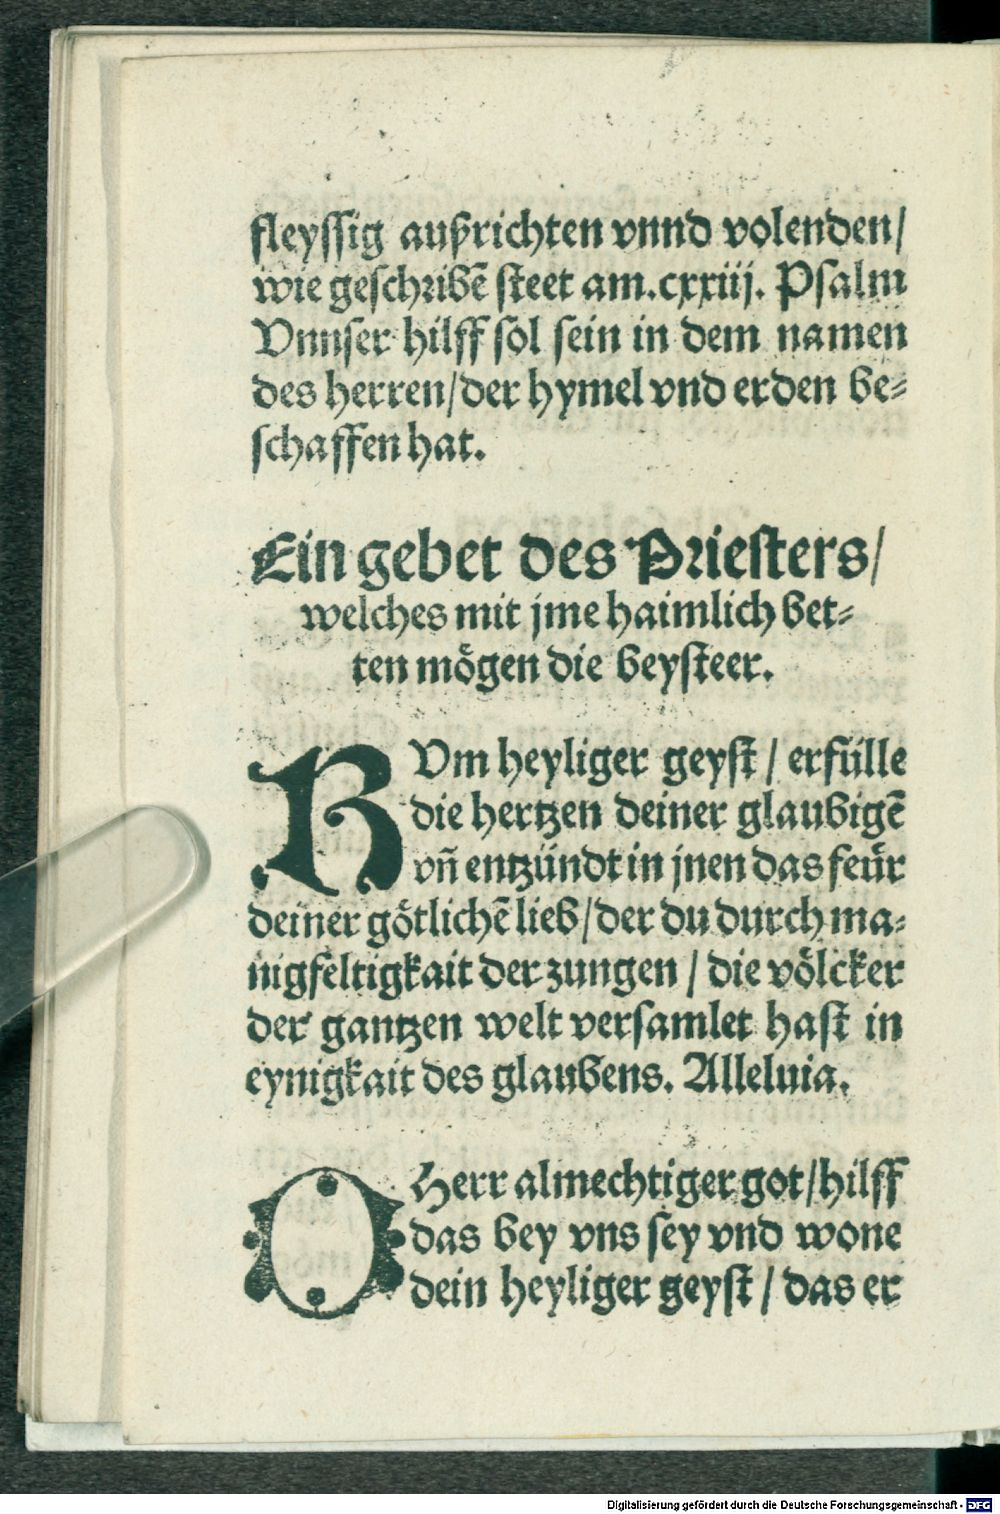 fleyssig außrichten vnnd volenden/
wie geschribē steet am.cxxiij. Psalm
Vnnser hilff sol sein in dem namen
des herren/der hymel vnd erden be-
schaffen hat.
Ein gebet des Priesters/
welches mit jme haimlich bet-
ten mögen die beysteer.
KVm heyliger geyst / erfülle
die hertzen deiner glaubigē
vñ entzündt in jnen das feür
deiner götlichē lieb/der du durch ma-
nigfeltigkait der zungen / die völcker
der gantzen welt versamlet hast in
eynigkait des glaubens. Alleluia.
O Herr almechtiger got/hilff
das bey vns sey vnd wone
dein heyliger geyst / das er
Digitalisierung gefördert durch die Deutsche Forschungsgemeinschaft - DFG